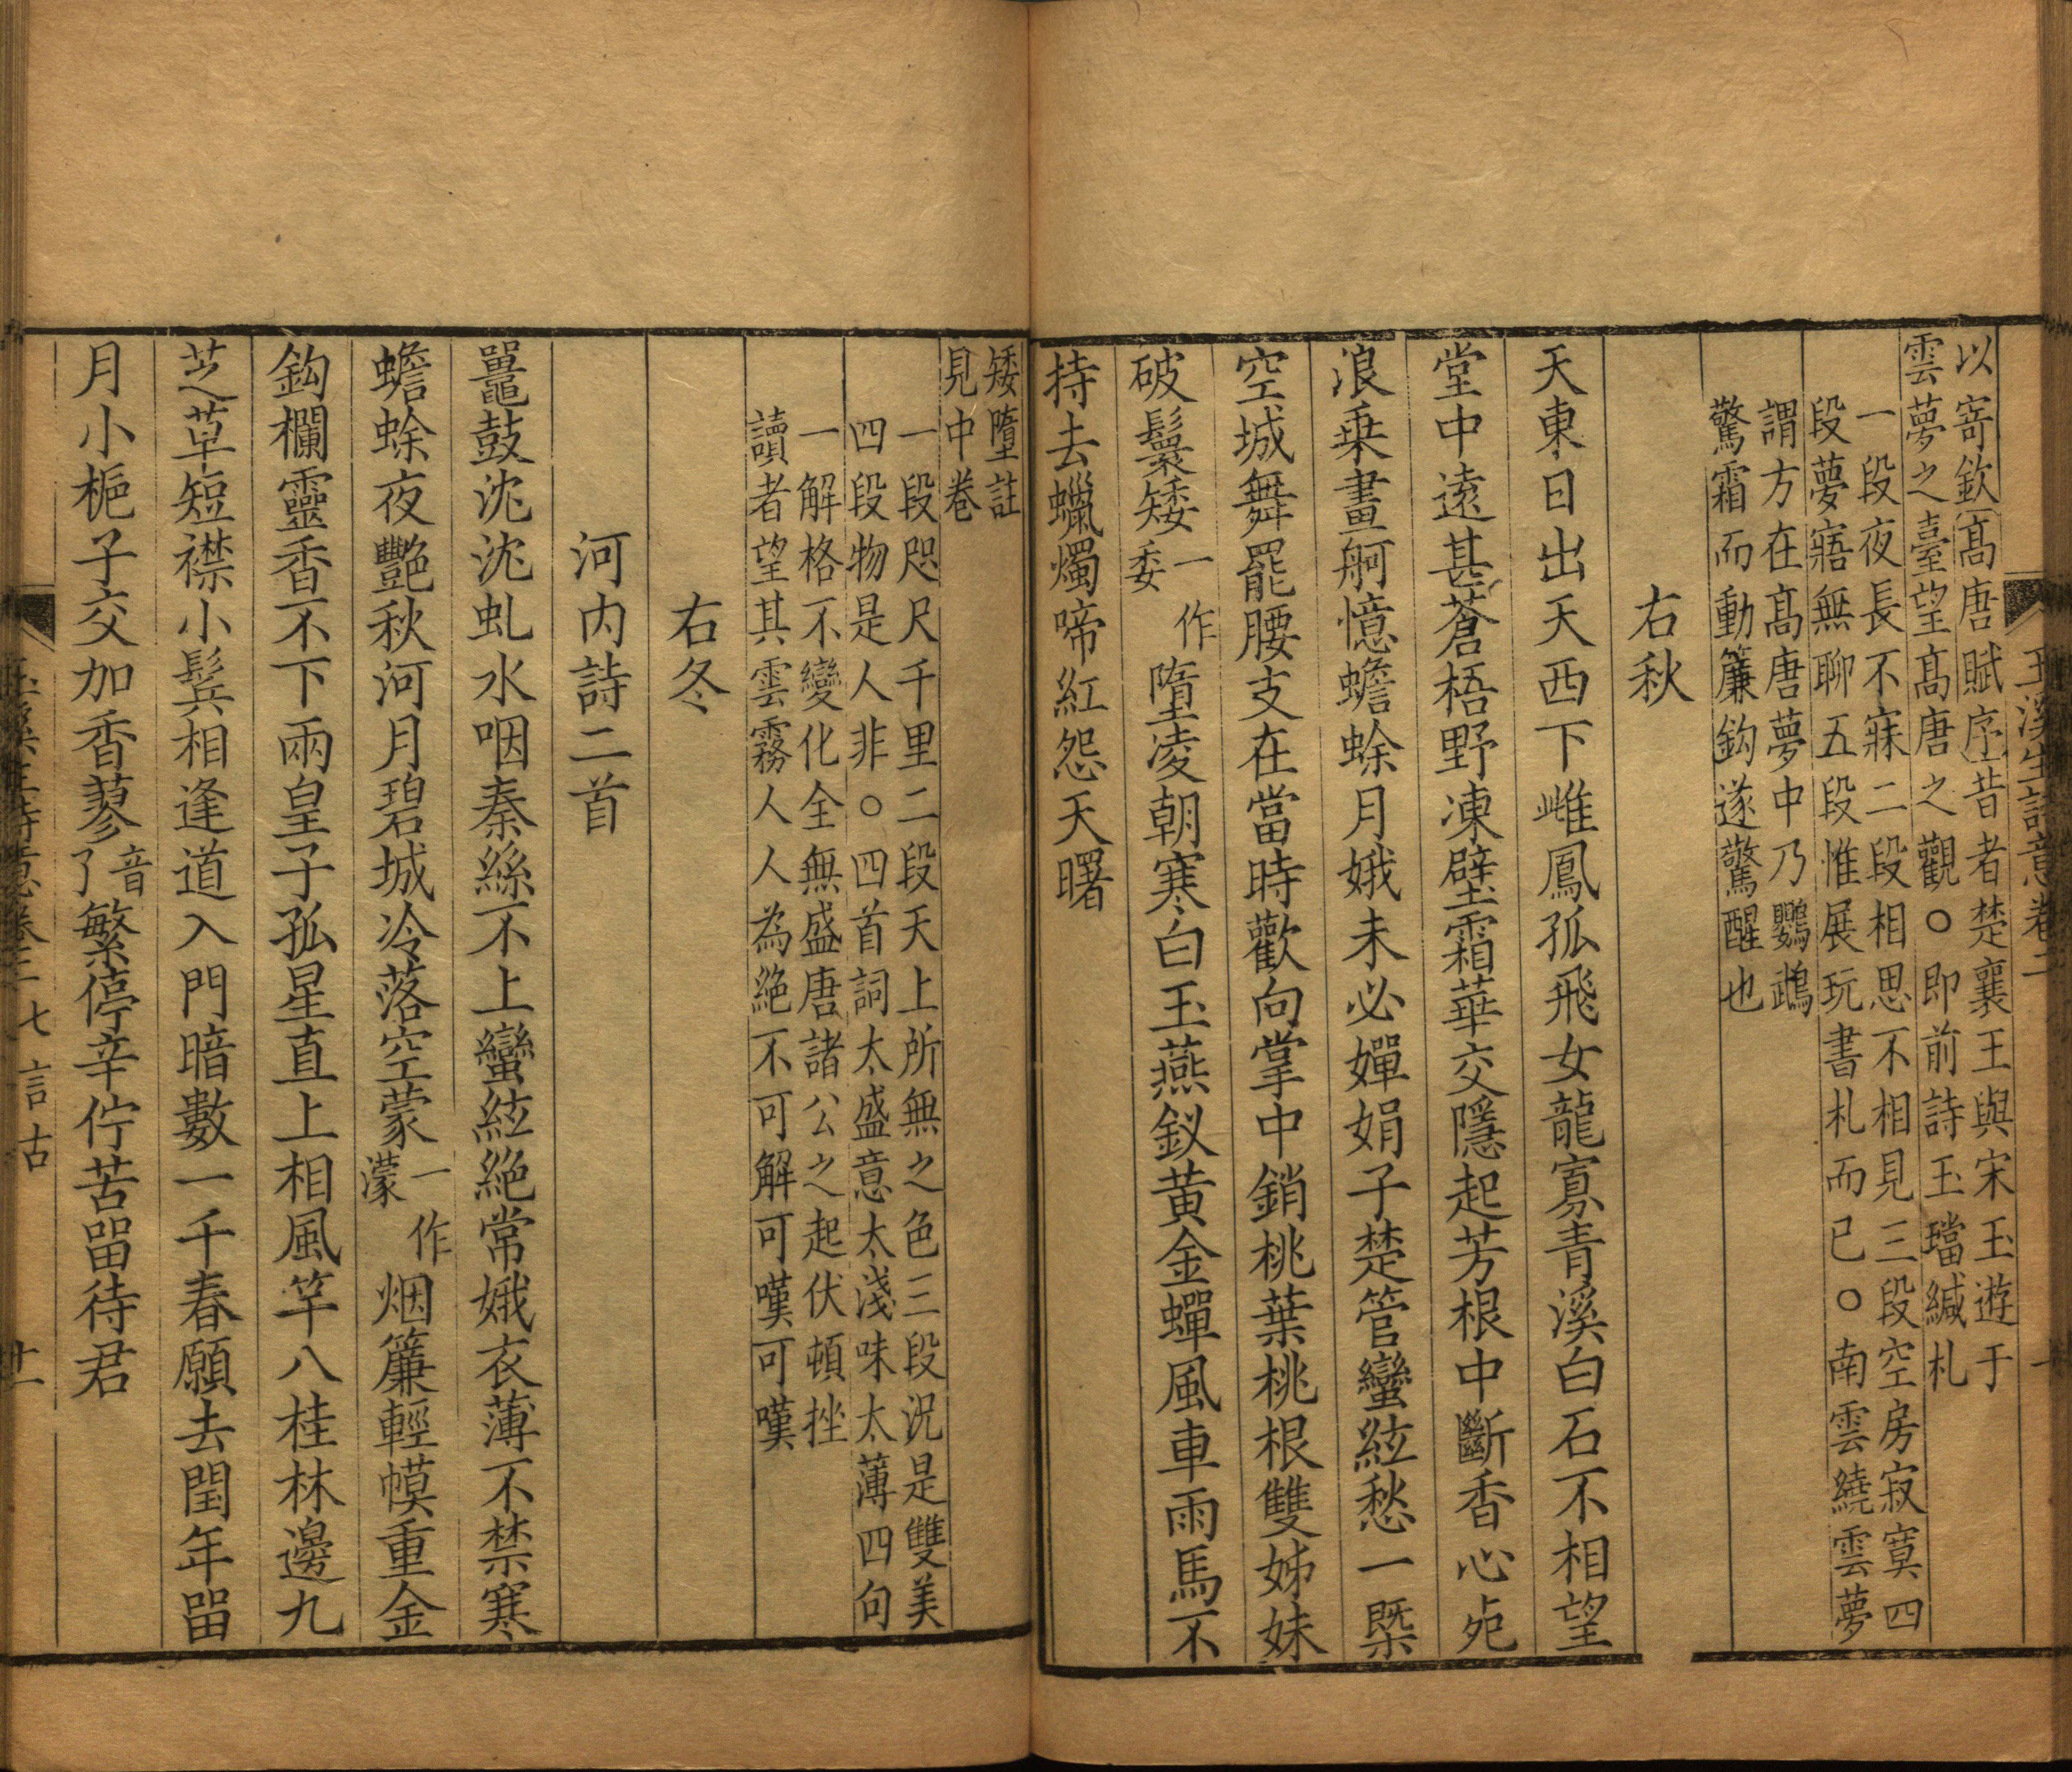 以寄欽高唐賦序昔者楚襄王與宋玉遊于
雲夢之臺望高唐之觀○即前詩玉璫緘札
一段夜長不寐二段相思不相見三段空房寂寞四
段夢寤無聊五段惟展玩書札而已○南雲繞雲夢
謂方在高唐夢中乃鸚鵡
驚霜而動簾鈎遂驚醒也
右秋
天東日出天西下雌鳳孤飛女龍寡青溪白石不相望
堂中遠甚蒼梧野凍壁霜華交隱起芳根中斷香心死
浪乗畫舸憶蟾蜍月娥未必嬋娟子楚管蠻絃愁一槩
空城舞罷腰支在當時歡向掌中銷桃葉桃根雙姊妹
破鬟矮一作委墮凌朝寒白玉燕釵黄金蟬風車雨馬不
持去蠟燭啼紅怨天曙
矮墮註
見中卷
一段咫尺千里二段天上所無之色三段況是雙美
四段物是人非○四首詞太盛意太淺味太薄四句
一解格不變化全無盛唐諸公之起伏頓挫
讀者望其雲霧人人為絶不可解可嘆可嘆
右冬
河内詩二首
鼉鼓沈沈虬水咽秦絲不上蠻絃絶常娥衣薄不禁寒
蟾蜍夜艷秋河月碧城冷落空蒙一作濛烟簾輕幙重金
鈎欄靈香不下兩皇子孤星直上相風竿八桂林邊九
芝草短襟小鬂相逢道入門暗數一千春願去閏年畱
月小梔子交加香蓼音了繁停辛佇苦畱待君
玉溪生詩意卷二
七言古
十一